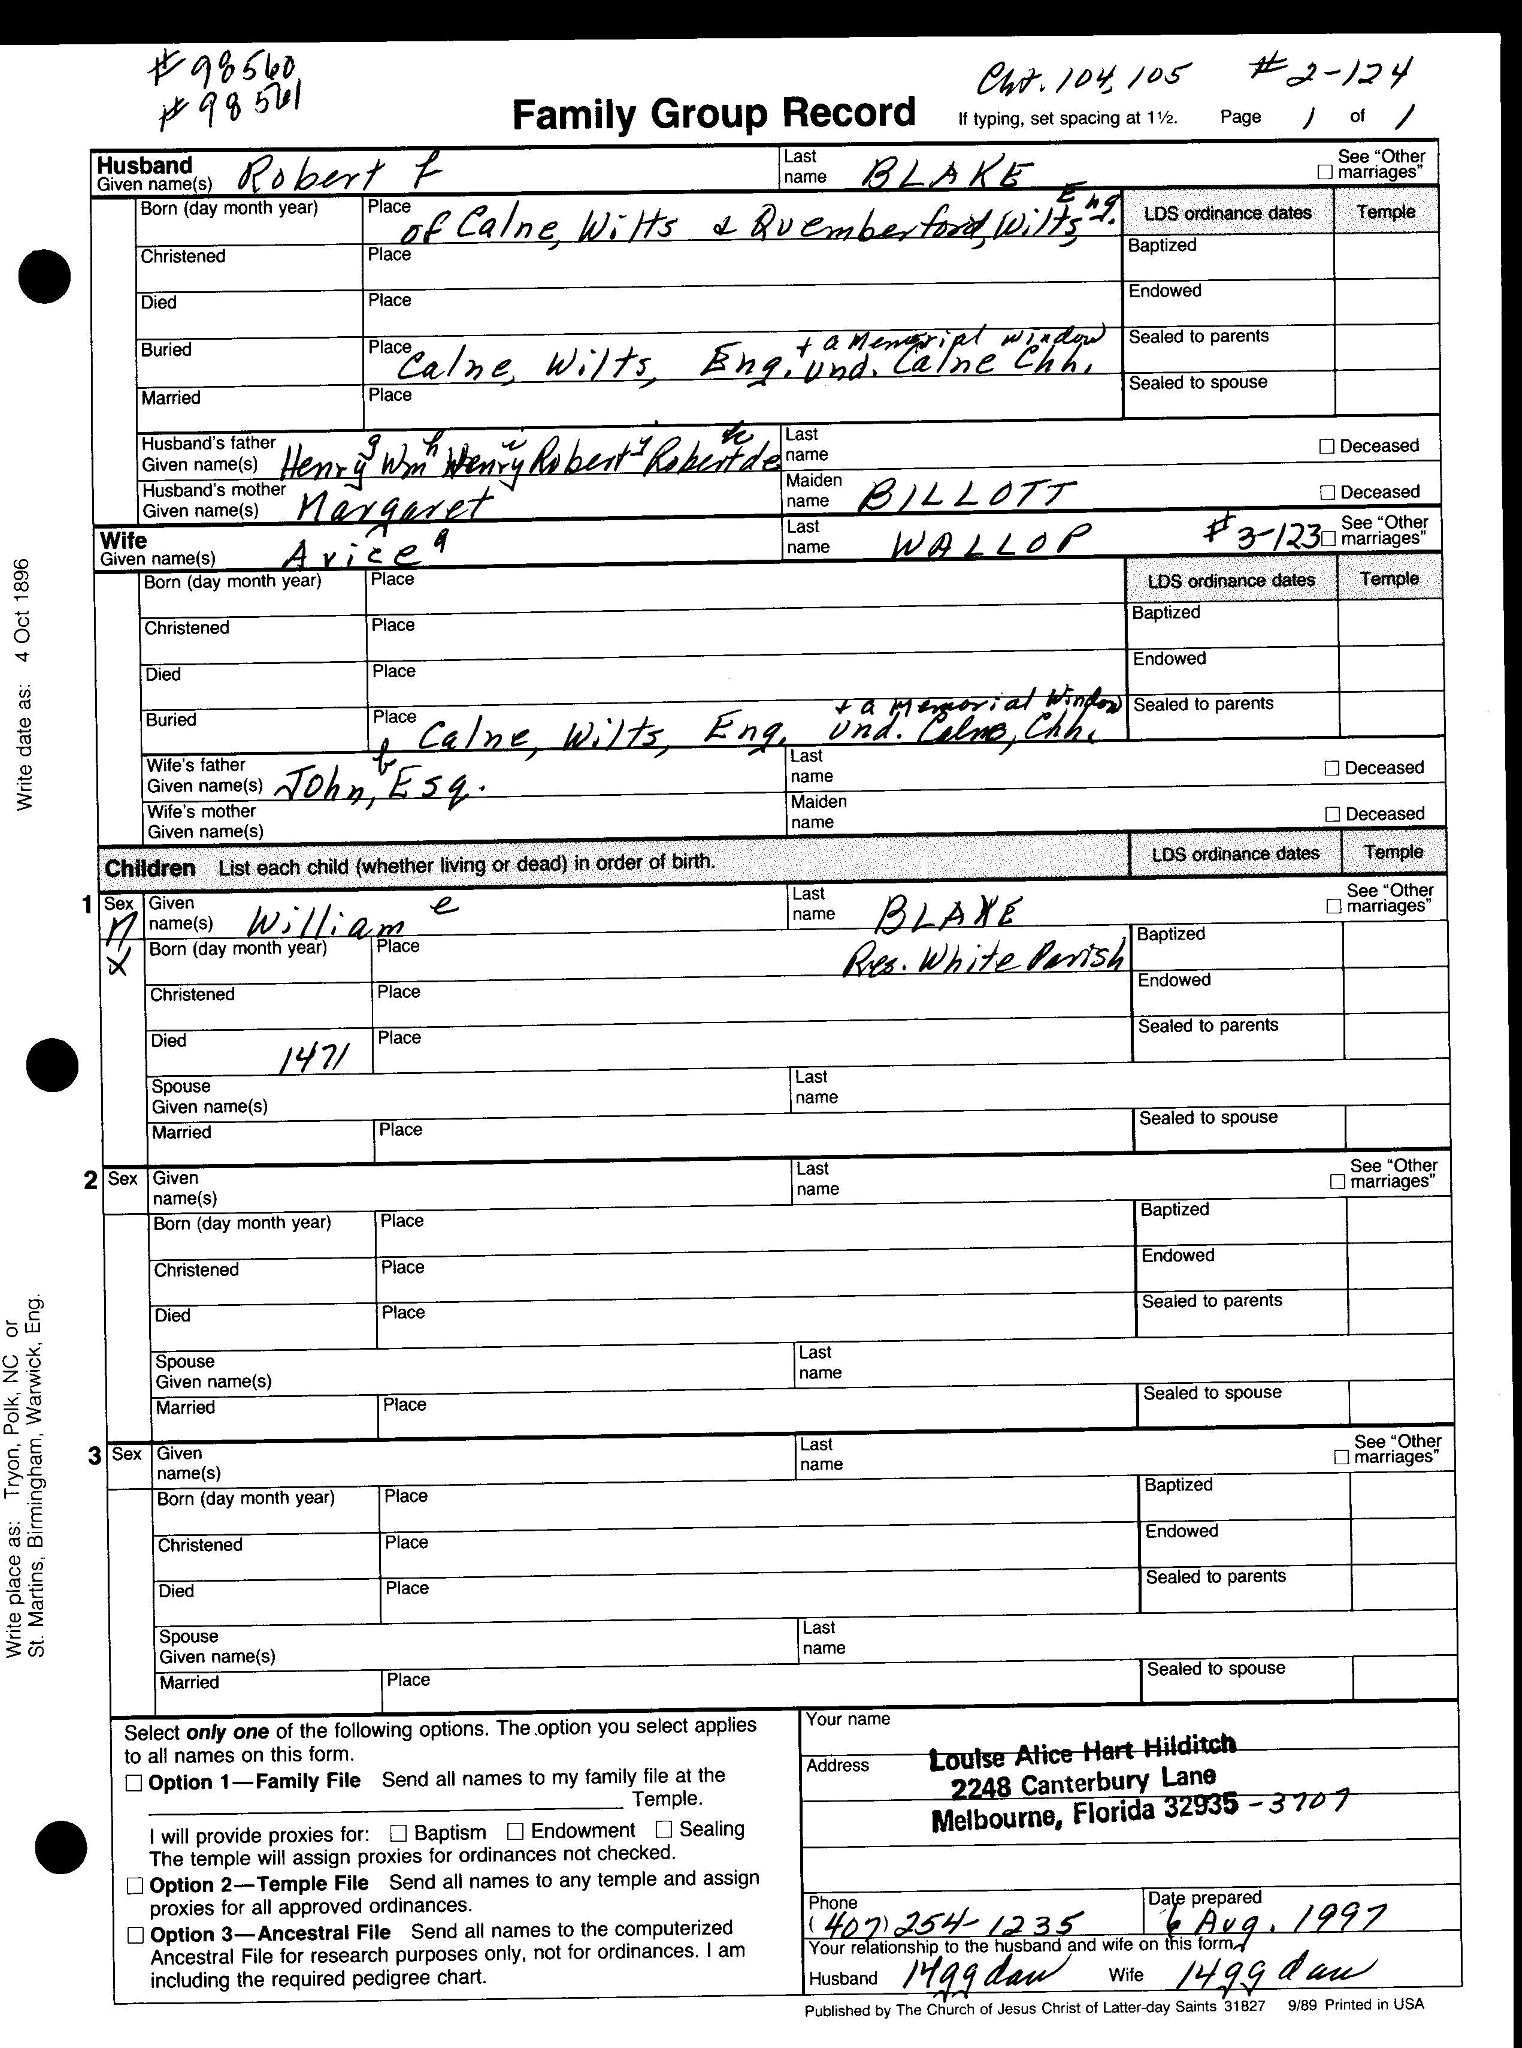 #98560
#98561
Cht. 104, 105 #2-124
Family Group Record
If typing, set spacing at 1½. Page 1 of 1
Husband
Given name(s) Robert f
Last name BLAKE
See "Other marriages"
Born (day month year)
Place of Calne, Wilts & Quemberford, Wilts, Eng.
LDS ordinance dates Temple
Christened Place
Baptized
Died Place
Endowed
Buried Place Calne, Wilts, Eng. + a Memorial window und. Calne Chh.
Sealed to parents
Married Place
Sealed to spouse
Husband's father
Given name(s) Henry g Wm h Henry i Robert j Robert k de
Last name
Deceased
Husband's mother
Given name(s) Margaret
Maiden name BILLOTT
Deceased
Wife
Given name(s) Avice a
Last name WALLOP #3-123
See "Other marriages"
Born (day month year) Place
LDS ordinance dates Temple
Christened Place
Baptized
Died Place
Endowed
Buried Place Calne, Wilts, Eng. + a Memorial Window und. Calne, Chh.
Sealed to parents
Wife's father
Given name(s) John, b Esq.
Last name
Deceased
Wife's mother
Given name(s)
Maiden name
Deceased
Children List each child (whether living or dead) in order of birth.
LDS ordinance dates Temple
1 Sex M X
Given name(s) William e
Last name BLAKE
See "Other marriages"
Born (day month year) Place Res. White Parish
Baptized
Christened Place
Endowed
Died 1471 Place
Sealed to parents
Spouse
Given name(s)
Last name
Married Place
Sealed to spouse
2 Sex
Given name(s)
Last name
See "Other marriages"
Born (day month year) Place
Baptized
Christened Place
Endowed
Died Place
Sealed to parents
Spouse
Given name(s)
Last name
Married Place
Sealed to spouse
3 Sex
Given name(s)
Last name
See "Other marriages"
Born (day month year) Place
Baptized
Christened Place
Endowed
Died Place
Sealed to parents
Spouse
Given name(s)
Last name
Married Place
Sealed to spouse
Write date as: 4 Oct 1896
Write place as: Tryon, Polk, NC or
St. Martins, Birmingham, Warwick, Eng.
Select only one of the following options. The option you select applies
to all names on this form.
Option 1—Family File Send all names to my family file at the
Temple.
I will provide proxies for: Baptism Endowment Sealing
The temple will assign proxies for ordinances not checked.
Option 2—Temple File Send all names to any temple and assign
proxies for all approved ordinances.
Option 3—Ancestral File Send all names to the computerized
Ancestral File for research purposes only, not for ordinances. I am
including the required pedigree chart.
Your name
Address
Louise Alice Hart Hilditch
2248 Canterbury Lane
Melbourne, Florida 32935-3707
Phone
(407) 254-1235
Date prepared
6 Aug. 1997
Your relationship to the husband and wife on this form
Husband 14gg dau Wife 14gg dau
Published by The Church of Jesus Christ of Latter-day Saints 31827 9/89 Printed in USA